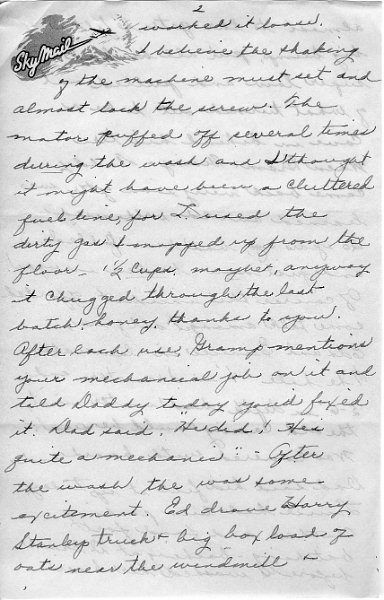 2
Sky Mail
worked it loose.
I believe the shaking
of the machine must set and
almost lock the screw. The
motor puffed off several times
during the wash and I thought
it might have been a cluttered
fuel line, for I used the
dirty gas I mopped up from the
floor - 1½ cups, maybe, anyway
it chugged through the last
batch honey, thanks to you.
After each use, Gramp mentions
your mechanical job on it and
told Daddy today you'd fixed
it. Dad said, "He did! Hes
quite a mechanic" - After
the wash the was some
excitement. Ed drove Harry
Stanley truck + big box load of
oats near the windmill +